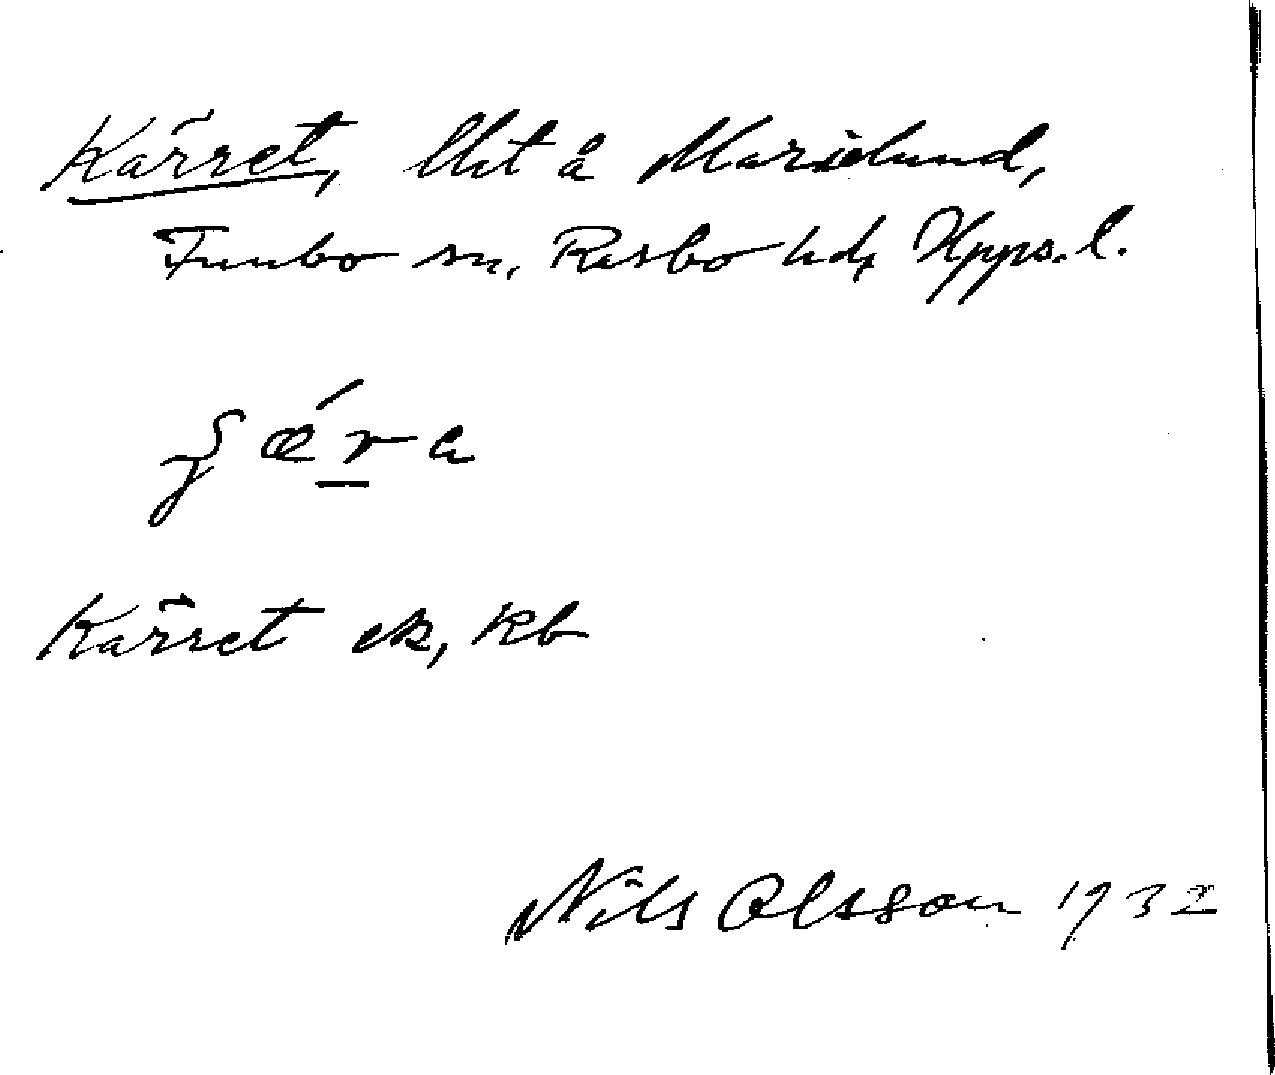 Kärret, lht å Marielund,
Funbo sn, Rasbo hd, Upps. l.
ʂǽra
Kärret ek, kb
Nils Olsson 1932